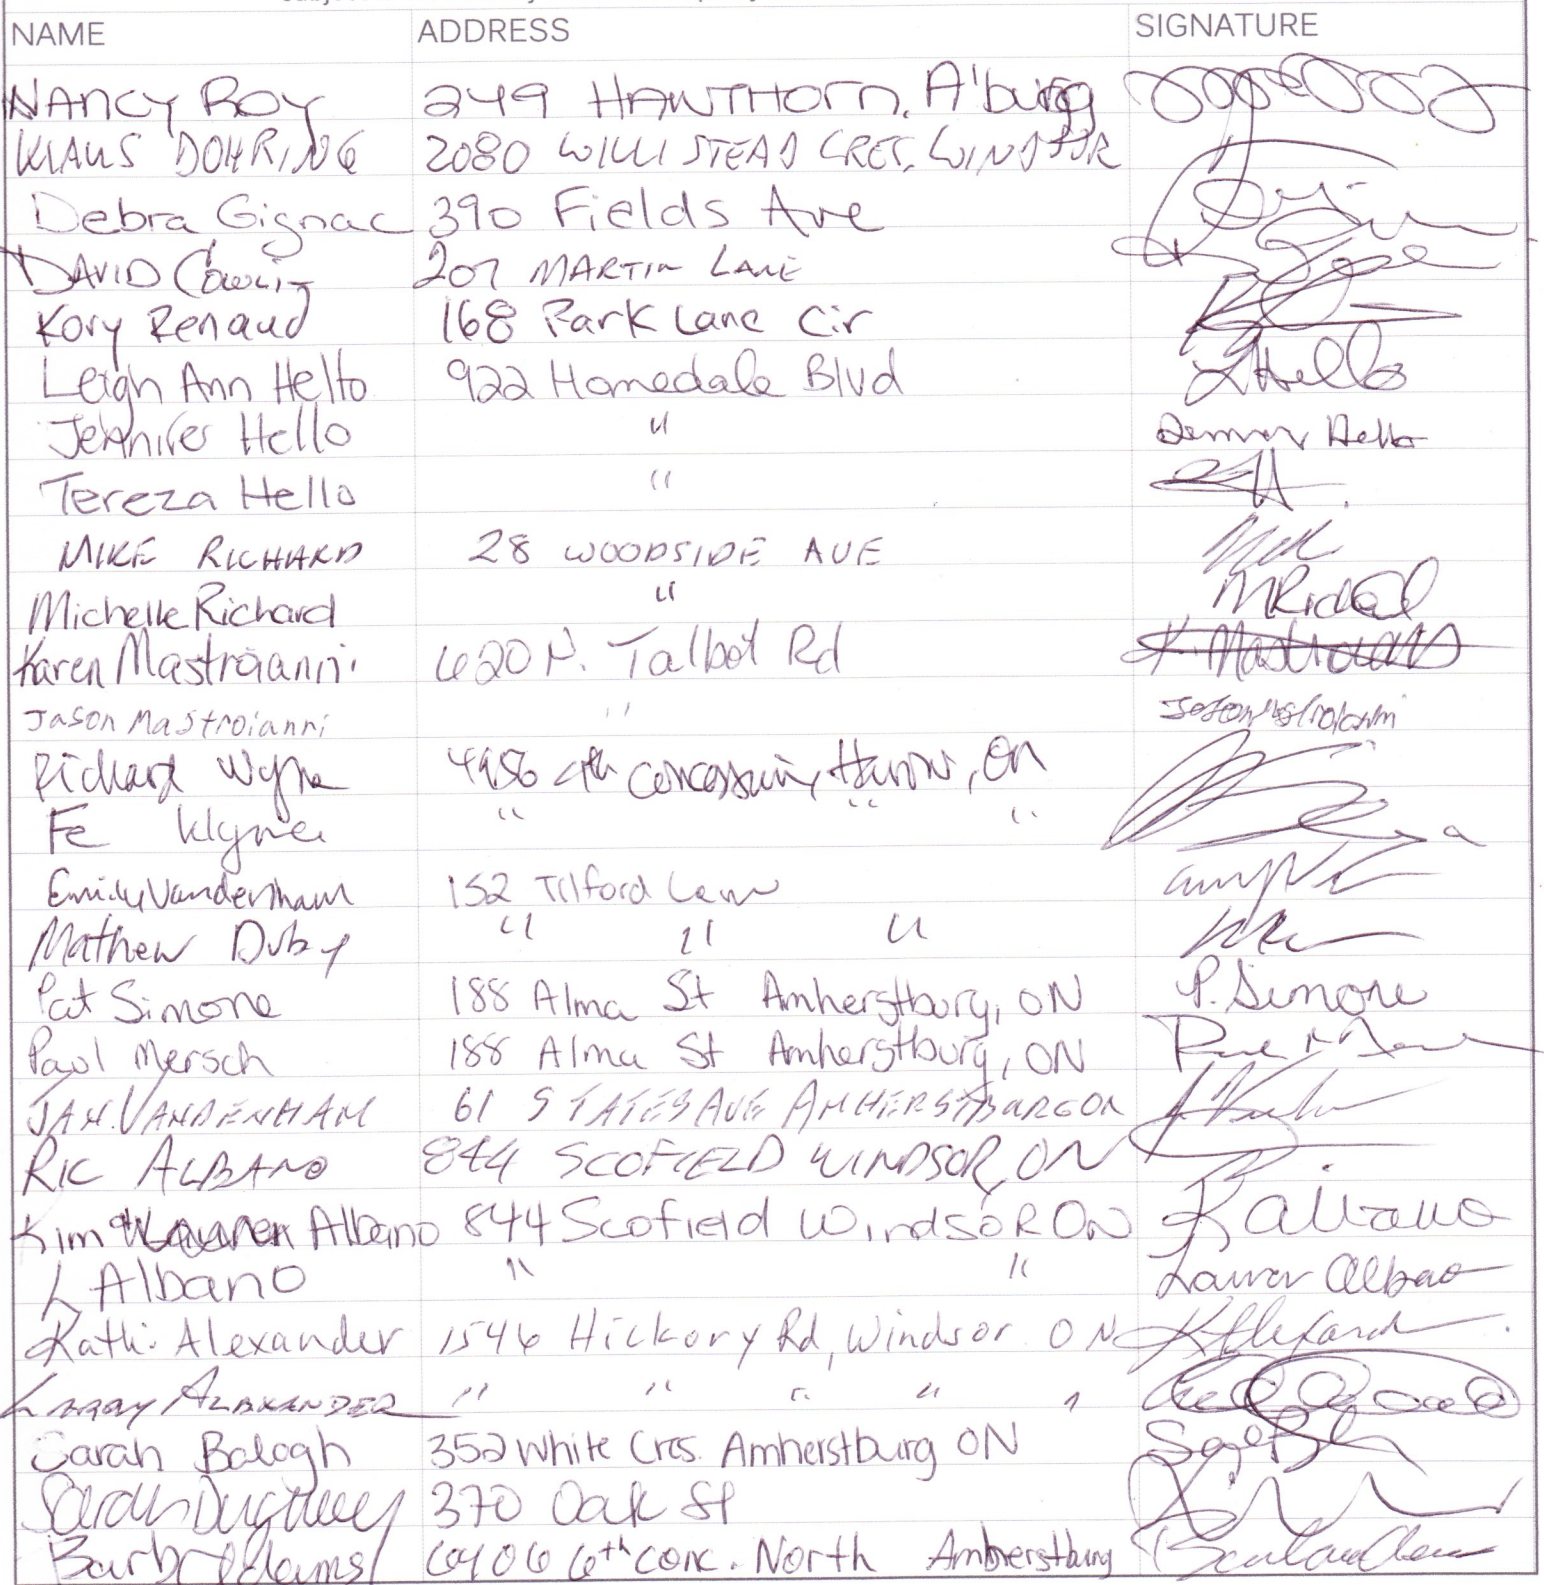 NAME ADDRESS SIGNATURE
NANCY ROY 249 HAWTHORN, A'burg
KLAUS DOHRING 2080 WILLISTEAD CRES, WINDSOR
Debra Gignac 390 Fields Ave
DAVID 207 MARTIN LANE
Kory Renaud 168 Park Lane Cir
Leigh Ann Hello 922 Homedale Blvd LHello
Jennifer Hello " Jennifer Hello
Tereza Hello "
MIKE RICHARD 28 WOODSIDE AVE
Michelle Richard " MRichard
Karen Mastroianni 620 N. Talbot Rd K. Mastroianni
Jason Mastroianni " Jason Mastroianni
Richard 4th Concession, Harrow, ON
Fe " " "
Emily Vandenham 152 Tilford Lane
Mathew Duby " " "
Pat Simone 188 Alma St Amherstburg, ON P. Simone
Paul Mersch 188 Alma St Amherstburg, ON
JAN VANDENHAM 61 STATES AVE AMHERSTBURG ON
RIC ALBANO 844 SCOFIELD WINDSOR, ON
Kim Albano 844 Scofield Windsor ON K Albano
L Albano " " Lauren Albano
Kathi Alexander 1546 Hickory Rd, Windsor ON K Alexander
LARRY ALEXANDER " " " " "
Sarah Balogh 352 White Cres. Amherstburg ON
Sarah 370 Oak St
Barb Adams 6406 6th conc. North Amherstburg